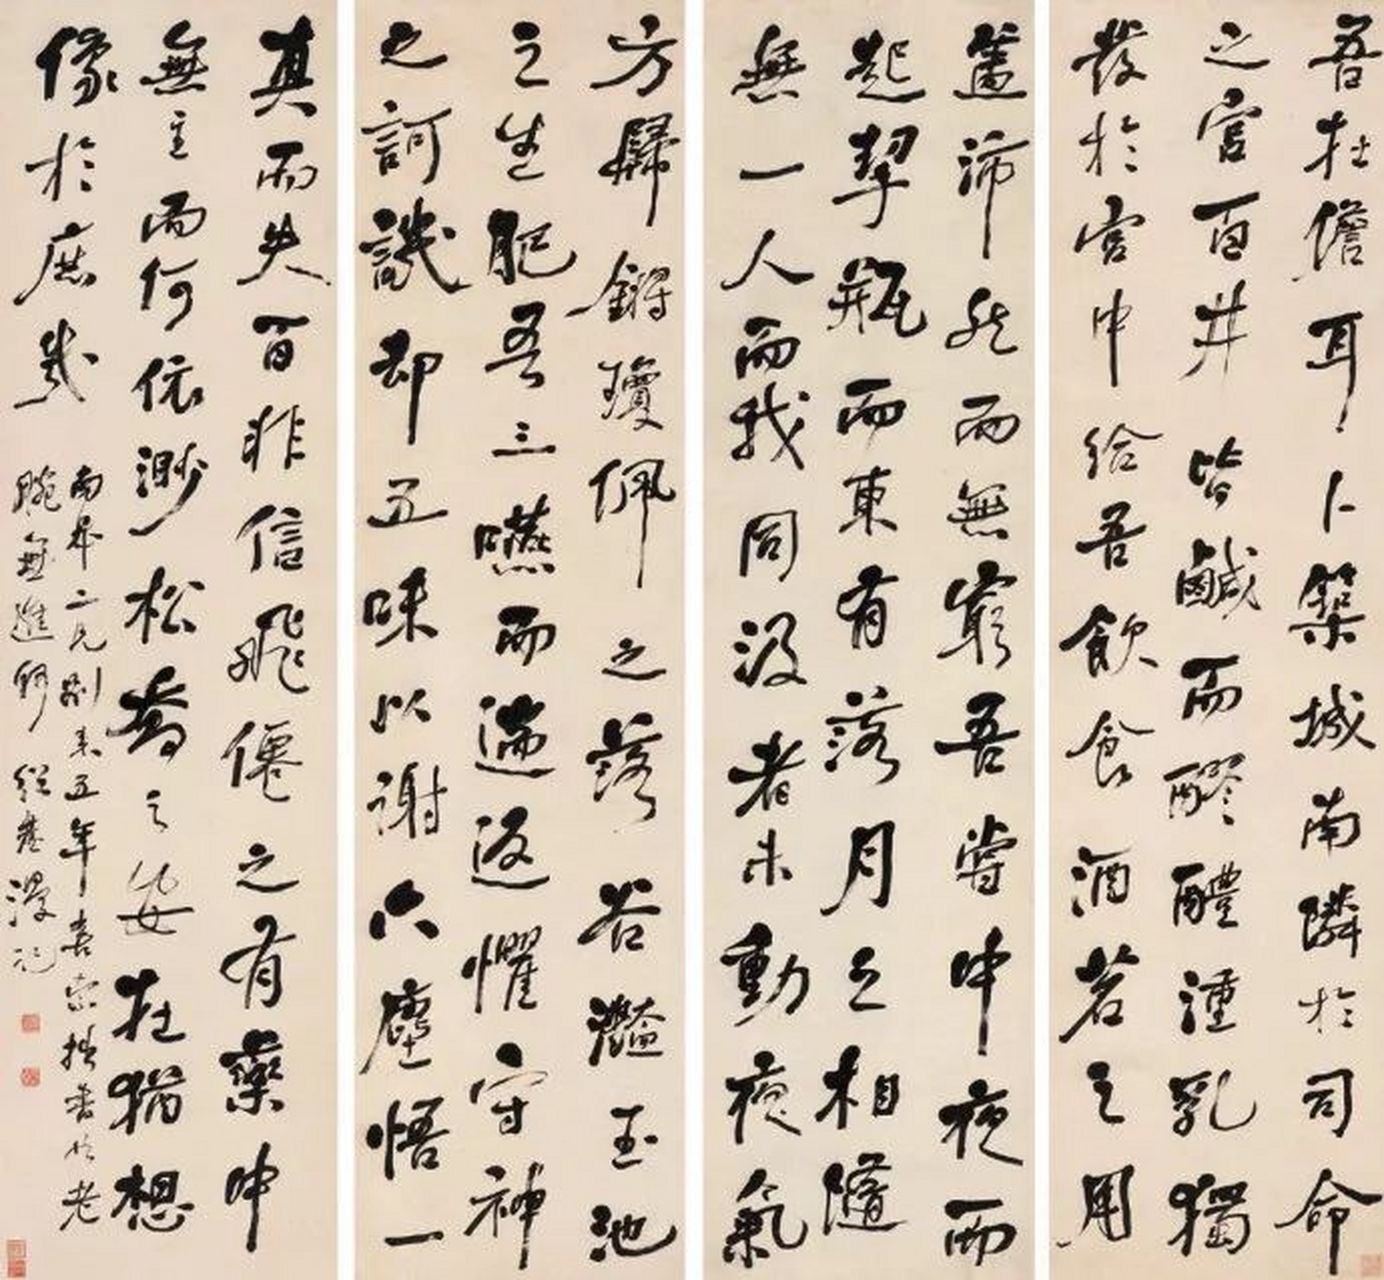 吾在儋耳卜築城南隣於司命
之宮百井皆鹹而醪醴湩乳獨
發於宮中給吾飲食酒茗之用
蓋沛然而無窮吾嘗中夜而
起挈瓶而東有落月之相隨
無一人而我同汲者未動夜氣
方歸鏘瓊佩之落谷灩玉池
之生肥吾三嚥而遄返懼守神
之訶譏却五味以謝六塵悟一
真而失百非信飛僊之有藥中
無主而何依渺松喬之安在猶想
像於庶幾
南屏二兄別來五年喜索拙書老
腕無進紹基漫